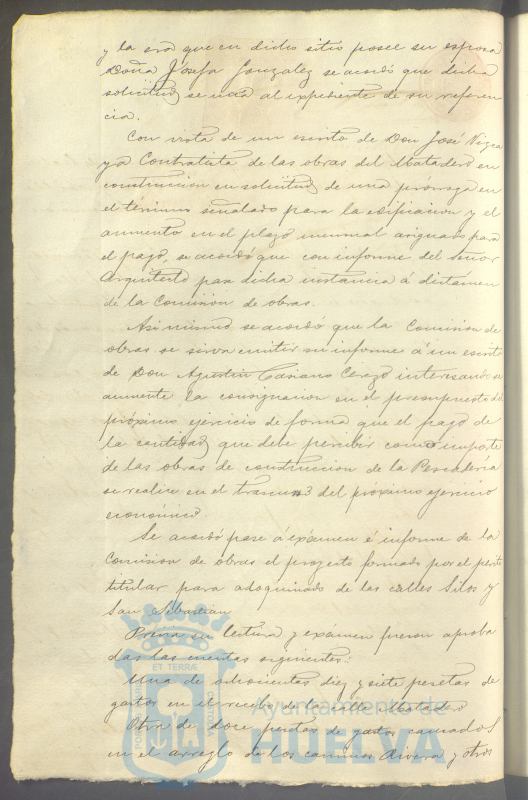 y la era que en dicho sitio posee su esposa
Doña Josefa Gonzalez se acordó que dicha
solicitud se una al expediente de su referen
cia.
Con vista de un escrito de Don José
Contratista de las obras del Matadero en
construccion en solicitud de una prórroga en
el término señalado para la edificacion y el
aumento en el plazo mensual asignado para
el pago, se acordó que con informe del Señor
Arquitecto pase dicha instancia á dictámen
de la Comision de obras.
Asi mismo se acordó que la Comision de
obras se sirva emitir su informe á un escrito
de Don Agustin Casiano Cerezo interesando se
aumente la consignacion en el presupuesto del
próximo ejercicio de forma que el pago de
la cantidad que debe percibir como importe
de las obras de construccion de la Pescaderia
se realice en el del próximo ejercicio
económico.
Se acordó pase á exámen é informe de la
Comision de obras el proyecto formado por el perito
titular para adoquinado de las calles Silos y
San Sebastian
Prévia su lectura y exámen fueron aproba
das las cuentas siguientes:
Una de ochocientas diez y siete pesetas de
gastos en el recibo de la calle Matadero
Otra de doce pesetas de gastos causados
en el arreglo de los caminos Rivera y otros
ET TERRÆ
Ayuntamiento de
HUELVA